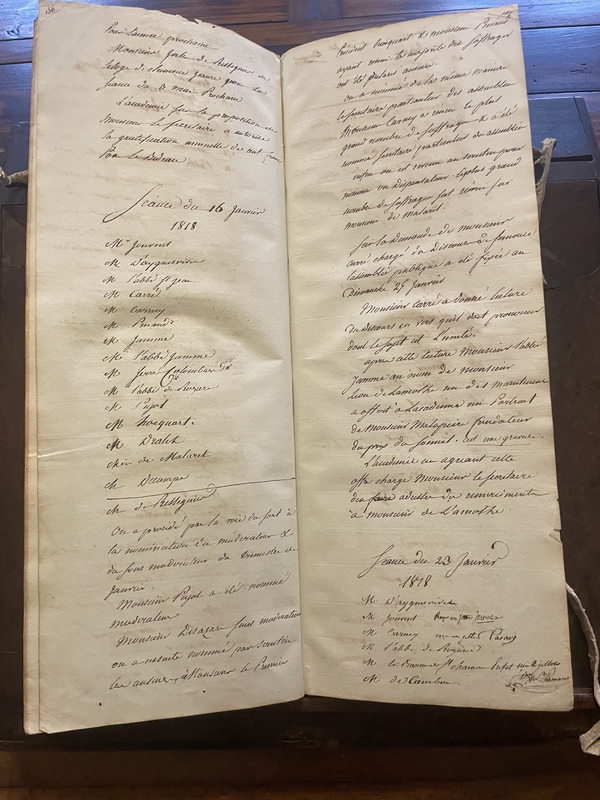 Pour l'année prochaine
Monsieur Jule de Resseguier
eloge de Clemence Isaure pour la
seance du 3 mai Prochain
L'académie sur la proposition de
Monsieur le secretaire a autorisé
la gratification annuelle de cent
Pour le Bedeau
Seance du 16 Janvier
1818
Mr Jouvent
M D'ayguesvives
M L'abbé St jean
M Carré
M Carney
M Pinaud
M Jamme
M L'abbé Jamme
M
M L'abbé de Auzere
M Pujol
M hocquart.
M Dralet
de Malaret
M Decampe
M de Resseguier
On a procédé par la voie du sort à
la nomination du moderateur &
du sous moderateur du trimestre de
Janvier.
Monsieur Pujol a été nommé
moderateur
Monsieur Desazar sous moderateur
on a ensuite nommé par scrutin
les censeurs, Monsieur le Premier
Président hocquart & monsieur Pinaud
ayant réuni la majorité des suffrages
ont été Déclarés censeurs
on a nommé de la même manière
le secretaire particulier des assemblées
Monsieur Carney a réuni le plus
grand nombre de suffrages & a été
nommé secretaire particulier des assemblées
enfin on est revenu au scrutin pour
nommer un Dispensateur le plus grand
nombre de suffrages s'est réuni sur
monsieur de Malaret.
Sur la Demande de monsieur
Carré chargé du Discours de semonce
l'assemblée publique a été fixée au
Dimanche 25 janvier
Monsieur Carré a donné lecture
du discours en vers qu'il doit prononcer
dont le sujet est L'unité.
après cette lecture Monsieur l'abbé
Jamme au nom de monsieur
Leon de Lamothe un des mainteneurs
a offert à L'académie un Portrait
de Monsieur Malapeire fondateur
du prix du sonnet. est une gravure.
L'académie en agréant cette
offre charge Monsieur le secretaire
de faire adresser des remerciments
à monsieur de L'amothe
Seance du 23 Janvier
1818
M D'ayguesvives
M Jouvent
M Carney
M l'abbé de Auzere
M le Baron de St Chamans Préfet
M de Cambon